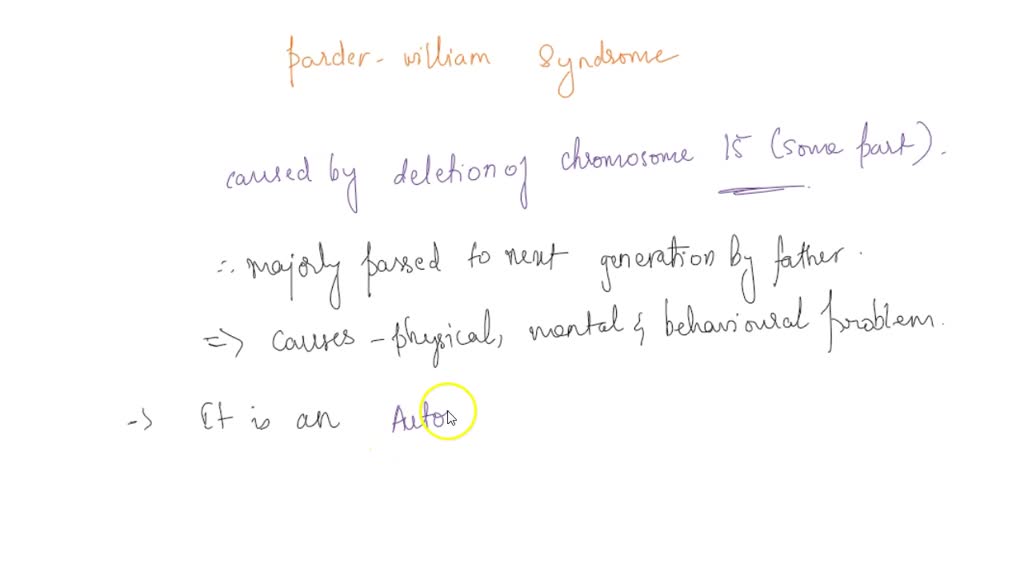 parder-william Syndrome
caused by deletion of chromosome 15 (some part).
∴ majorly passed to next generation by father.
=> causes - physical, mental & behavioural problem.
-> It is an Auto